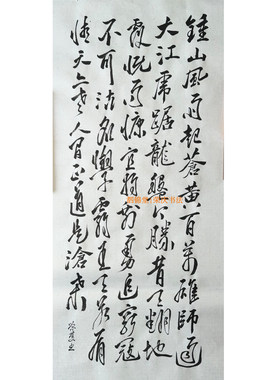 鍾山風雨起蒼黃百萬雄師過
大江虎踞龍盤今勝昔天翻地
覆慨而慷宜將剩勇追窮寇
不可沽名學霸王天若有
情天亦老人間正道是滄桑